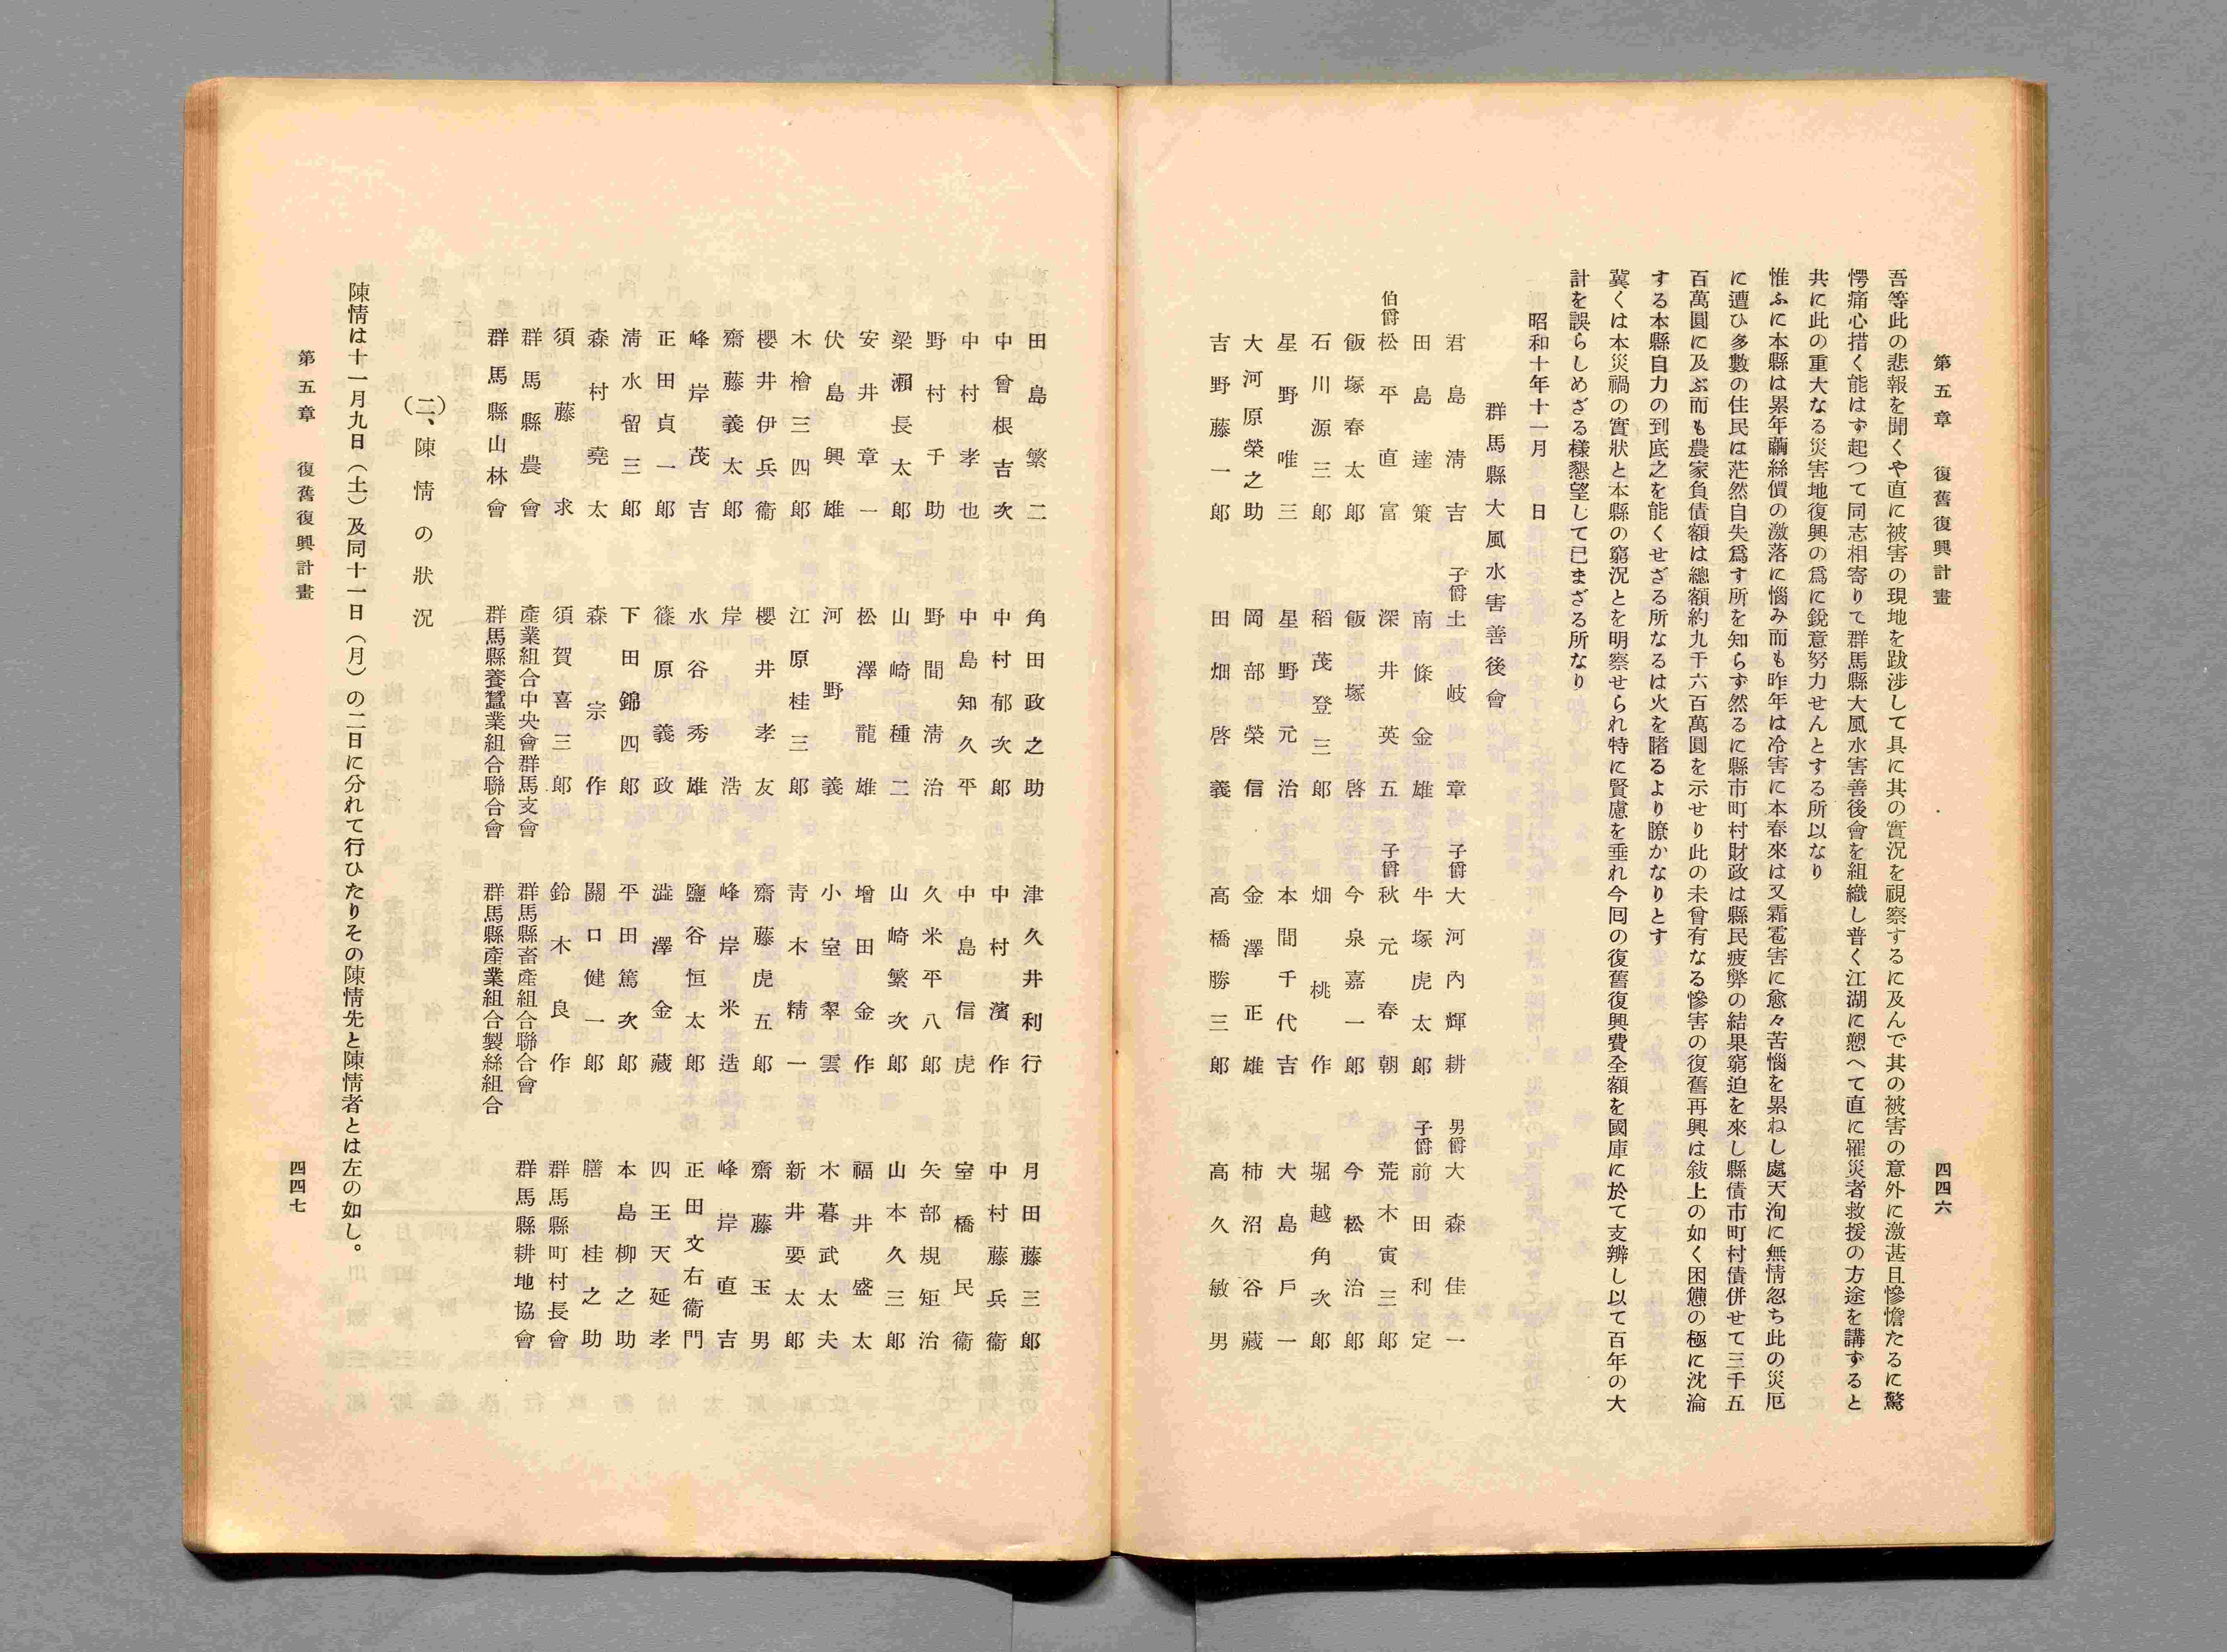 第五章　復舊復興計畫
四四六
吾等此の悲報を聞くや直に被害の現地を跋渉して具に其の實況を視察するに及んで其の被害の意外に激甚且慘憺たるに驚
愕痛心措く能はず起つて同志相寄りて群馬縣大風水害善後會を組織し普く江湖に愬へて直に罹災者救援の方途を講ずると
共に此の重大なる災害地復興の爲に銳意努力せんとする所以なり
惟ふに本縣は累年繭絲價の激落に惱み而も昨年は冷害に本春來は又霜雹害に愈々苦惱を累ねし處天洵に無情忽ち此の災厄
に遭ひ多數の住民は茫然自失爲す所を知らず然るに縣市町村財政は縣民疲弊の結果窮迫を來し縣債市町村債併せて三千五
百萬圓に及ぶ而も農家負債額は總額約九千六百萬圓を示せり此の未曾有なる慘害の復舊再興は敍上の如く困憊の極に沈淪
する本縣自力の到底之を能くせざる所なるは火を睹るより瞭かなりとす
冀くは本災禍の實狀と本縣の窮況とを明察せられ特に賢慮を垂れ今囘の復舊復興費全額を國庫に於て支辨し以て百年の大
計を誤らしめざる樣懇望して已まざる所なり
昭和十年十一月　日
群馬縣大風水害善後會
君島淸吉　子爵 土岐章　子爵 大河內輝耕　男爵 大森佳一
田島達策　南條金雄　牛塚虎太郎　子爵 前田利定
伯爵 松平直富　深井英五　子爵 秋元春朝　荒木寅三郎
飯塚春太郎　飯塚啓　今泉嘉一郎　今松治郎
石川源三郎　稻茂登三郎　畑桃作　堀越角次郎
星野唯三　星野元治　本間千代吉　大島戶一
大河原榮之助　岡部榮信　金澤正雄　柿沼谷藏
吉野藤一郎　田畑啓義　高橋勝三郎　高久敏男
田島繁二　角田政之助　津久井利行　月田藤三郎
中曾根吉次　中村郁次郎　中村濱作　中村藤兵衞
中村孝也　中島知久平　中島信虎　室橋民衞
野村千助　野間淸治　久米平八郎　矢部規矩治
梁瀨長太郎　山崎種二　山崎繁次郎　山本久三郎
安井章一　松澤龍雄　增田金作　福井盛太
伏島興雄　河野義　小室翠雲　木暮武太夫
木檜三四郎　江原桂三郎　靑木精一　新井要太郎
櫻井伊兵衞　櫻井孝友　齋藤虎五郎　齋藤玉男
齋藤義太郎　岸浩　峰岸米造　峰岸直吉
峰岸茂吉　水谷秀雄　鹽谷恒太郎　正田文右衞門
正田貞一郎　篠原義政　澁澤金藏　四王天延孝
淸水留三郎　下田錦四郎　平田篤次郎　本島柳之助
森村堯太　森宗作　關口健一郎　膳桂之助
須藤求　須賀喜三郎　鈴木良作　群馬縣町村長會
群馬縣農會　產業組合中央會群馬支會　群馬縣畜產組合聯合會　群馬縣耕地協會
群馬縣山林會　群馬縣養蠶業組合聯合會　群馬縣產業組合製絲組合
(二)、陳情の狀況
陳情は十一月九日（土）及同十一日（月）の二日に分れて行ひたりその陳情先と陳情者とは左の如し。
第五章　復舊復興計畫
四四七